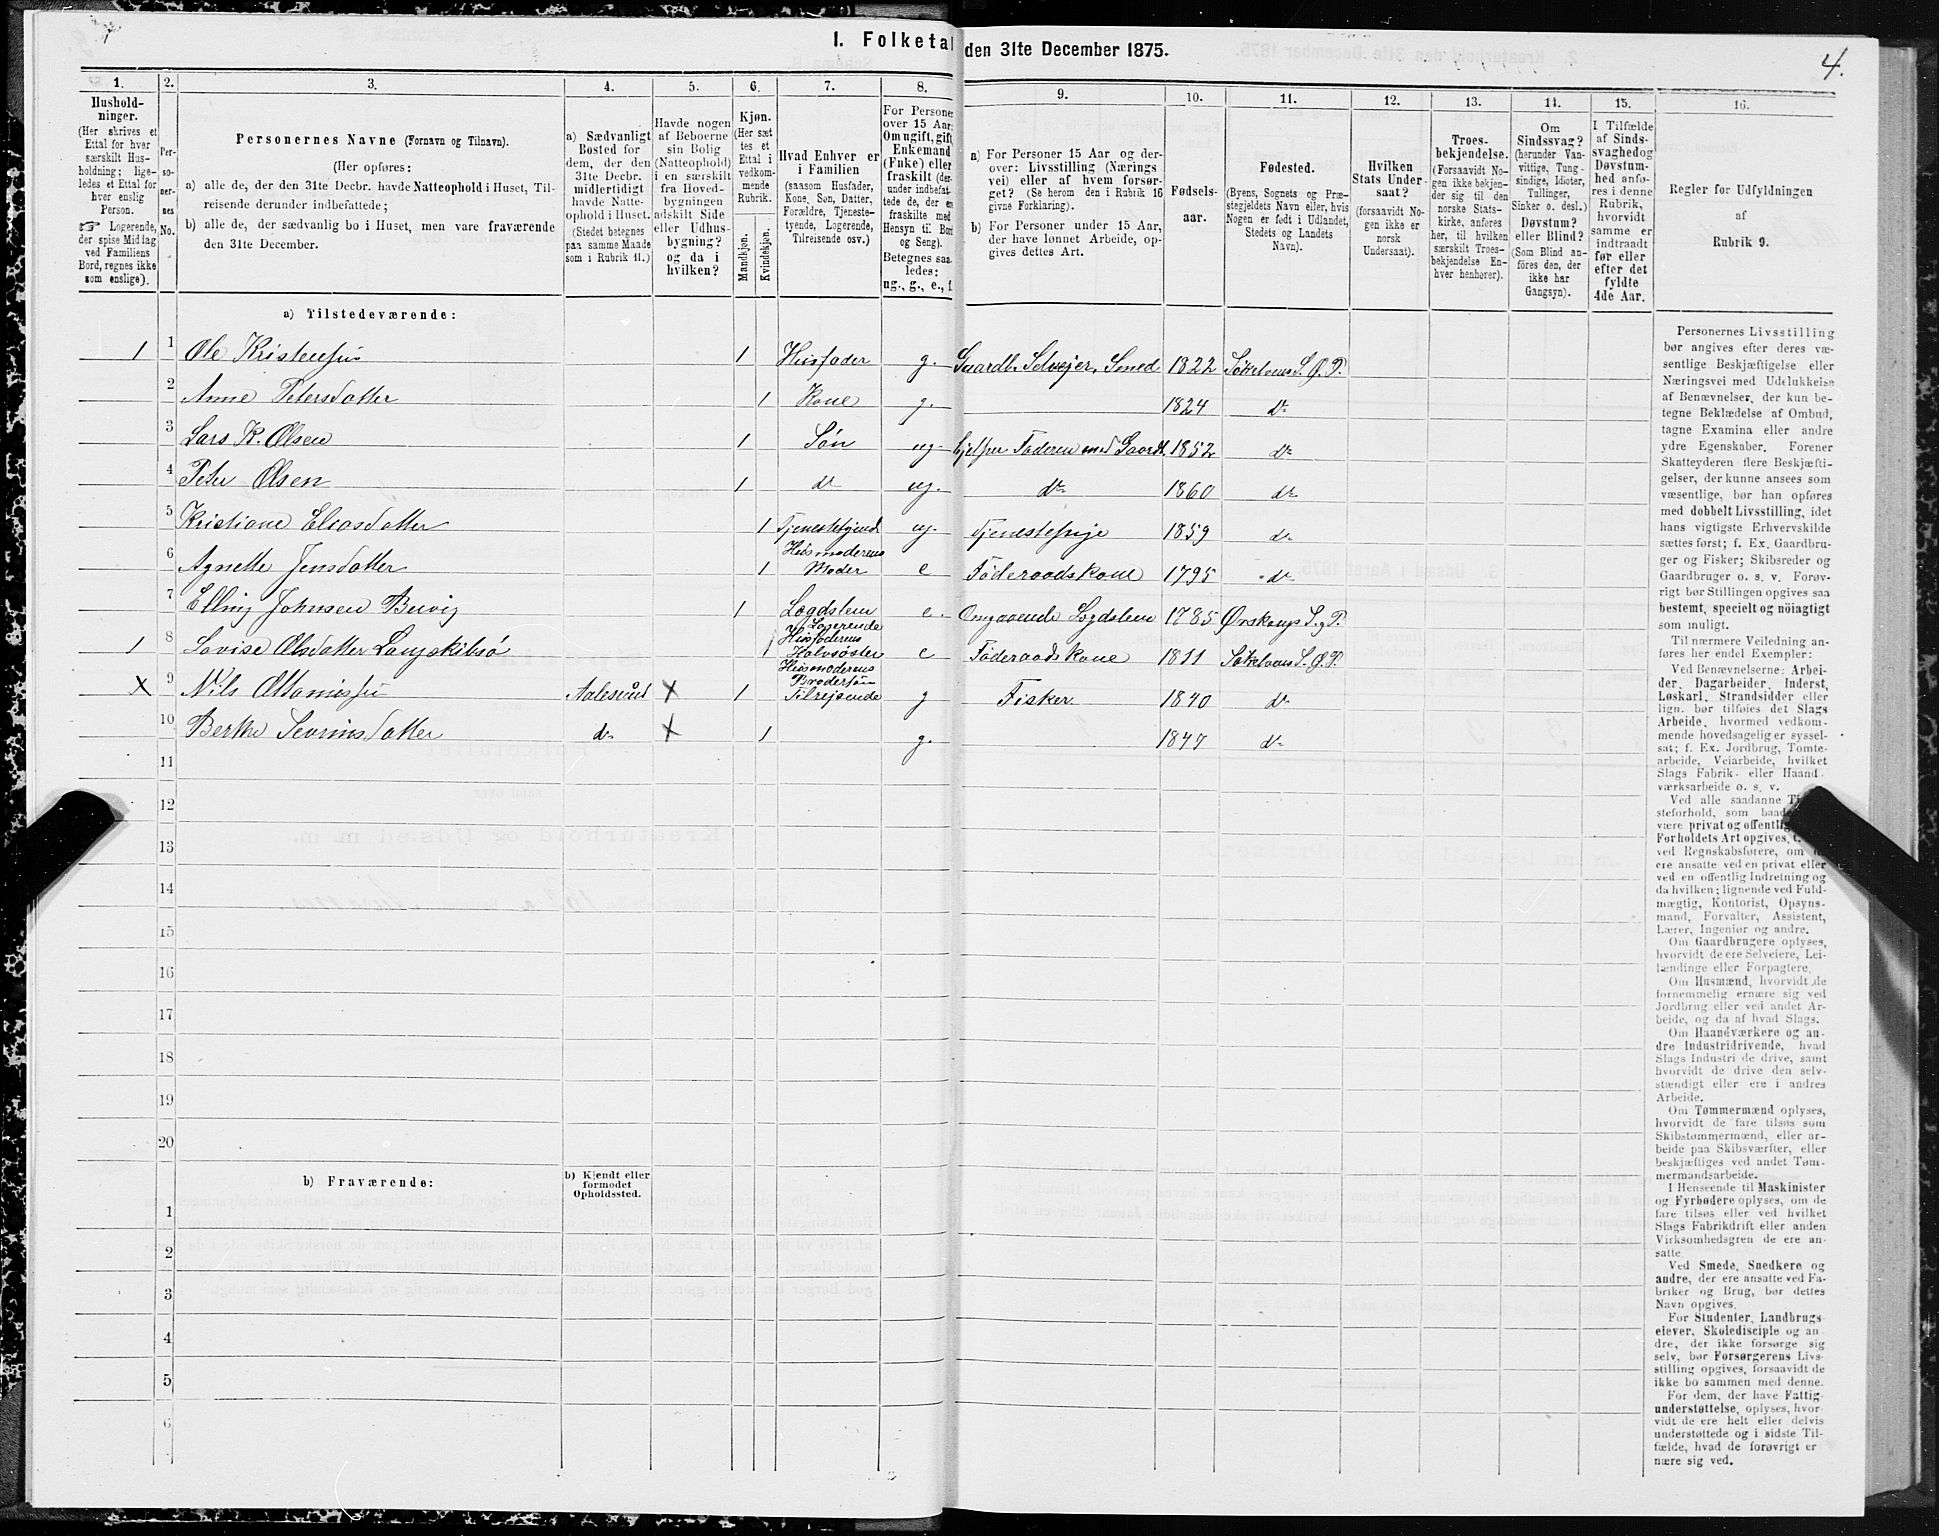 1. Folketal den 31te December 1875.
4.
1. 2. 3. 4. 5. 6. 7. 8. 9. 10. 11. 12. 13. 14. 15. 16.
Hushold-
ninger.
(Her skrives et
Ettal for hver
særskilt Hus-
holdning; lige-
ledes et Ettal for
hver enslig
Person.
☞ Logerende,
der spise Middag
ved Familiens
Bord, regnes ikke
som enslige).
Per-
so-
ner-
nes
No.
Personernes Navne (Fornavn og Tilnavn).
(Her opføres:
a) alle de, der den 31te Decbr. havde Natteophold i Huset, Til-
reisende derunder indbefattede;
b) alle de, der sædvanlig bo i Huset, men vare fraværende
den 31te December.
a) Sædvanligt
Bosted for
dem, der den
31te Decbr.
midlertidigt
havde Natte-
ophold i Huset.
(Stedet betegnes
paa samme Maade
som i Rubrik 11.)
Havde nogen
af Beboerne
sin Bolig
(Natteophold)
i en særskilt
fra Hoved-
bygningen
adskilt Side
eller Udhus-
bygning?
og da i
hvilken?
Kjøn.
(Her sæt
tes et
Ettal i
vedkom-
mende
Rubrik.
Mandkjøn.
Kvindekjøn.
Hvad Enhver er
i Familien
(saasom Husfader,
Kone, Søn, Datter,
Forældre, Tjeneste-
tyende, Logerende,
Tilreisende osv.)
For Personer
over 15 Aar:
Om ugift, gift,
Enkemand
(Enke) eller
fraskilt (der-
under indbefat-
tede de, der ere
fraskilte med
Hensyn til Bord
og Seng).
Betegnes saa-
ledes:
ug., g., e., f.
a) For Personer 15 Aar og der-
over: Livsstilling (Nærings
vei) eller af hvem forsør-
get? (Se herom den i Rubrik 16
givne Forklaring).
b) For Personer under 15 Aar,
der have lønnet Arbeide, op-
gives dettes Art.
Fødsels-
aar.
Fødested.
(Byens, Sognets og Præ-
stegjeldets Navn eller, hvis
Nogen er født i Udlandet,
Stedets og Landets
Navn).
Hvilken
Stats Under-
saat?
(forsaavidt No-
gen ikke er
norsk
Undersaat).
Troes-
bekjendelse.
(Forsaavidt No-
gen ikke bekjen-
der sig til den
norske Stats-
kirke, anføres
her, til hvilken
særskilt Troes-
bekjendelse En-
hver henhører).
Om
Sindssvag?
(herunder Van-
vittige, Tung-
sindige, Idioter,
Tullinger,
Sinker o. desl.)
Døvstum?
eller Blind?
(Som Blind an-
føres den, der
ikke har
Gangsyn).
I Tilfælde
af Sinds-
svaghed og
Døvstum-
hed anfø-
res i denne
Rubrik,
hvorvidt
samme er
indtraadt
før eller
efter det
fyldte
4de Aar.
Regler for Udfyldningen
af
Rubrik 9.
a) Tilstedeværende:
1 1 Ole Kristensen 1 Husfader g. Gaardb. Selvejer. Smed 1822 Søkelvens S. Ø. P.
2 Anne Petersdatter 1 Kone g. 1824 do
3 Lars K. Olsen 1 Søn ug hjelper Faderen med Gaardb. 1852 do
4 Peter Olsen 1 do ug. do 1860 do
5 Kristiane Eliasdatter 1 ug. 1859 do
6 Agnette Jensdatter 1 Husmoderens Moder e Føderaadskone 1795 do
7 Elling Johnsen Buvig 1 Lægdslem e. Omgaaende Lægdslem 1785 Ørskougs S. og P.
1 8 Lovise Olsdatter Langskibsø 1 Logerende Husfaderens Halvsøster e Føderaadskone 1811 Søkelvens S. Ø. P.
X 9 Nils Aalesund X 1 Husmoderens Brodersøn Tilrejsende g Fisker 1840 do
10 Berthe Sevrinsdatter do X 1 g. 1847 do
11
12
13
14
15
16
17
18
19
20
b) Fraværende:
b) Kjendt eller
formodet
Opholdssted.
1
2
3
4
5
6
Personernes Livsstilling
bør angives efter deres væ-
sentlige Beskjæftigelse eller
Næringsvei med Udelukkelse
af Benævnelser, der kun be-
tegne Beklædelse af Ombud,
tagne Examina eller andre
ydre Egenskaber. Forener
Skatteyderen flere Beskjæfti-
gelser, der kunne ansees som
væsentlige, bør han opføres
med dobbelt Livsstilling, idet
hans vigtigste Erhvervskilde
sættes først; f. Ex. Gaardbru-
ger og Fisker; Skibsreder og
Gaardbruger o. s. v. Forøv-
rigt bør Stillingen opgives saa
bestemt, specielt og nöiagtigt
som muligt.
Til nærmere Veiledning an-
føres her endel Exempler:
Ved Benævnelserne: Arbei-
der, Dagarbeider, Inderst,
Løskarl, Strandsidder eller
lign. bør tilføies det Slags
Arbeide, hvormed vedkom-
mende hovedsagelig er syssel-
sat; f. Ex. Jordbrug, Tomte-
arbeide, Veiarbeide, hvilket
Slags Fabrik- eller Haand-
værksarbeide o. s. v.
Ved alle saadanne
steforhold, som
være privat og offentlig
Forholdets Art opgives,
ved Regnskabsførere, om
ere ansatte ved en privat eller
ved en offentlig Indretning og
da hvilken; lignende ved Fuld-
mægtig, Kontorist, Opsyns-
mand, Forvalter, Assistent,
Lærer, Ingeniør og andre.
Om Gaardbrugere oplyses,
hvorvidt de ere Selveiere, Lei-
lændinge eller Forpagtere.
Om Husmænd, hvorvidt de
fornemmelig ernære sig ved
Jordbrug eller ved andet Ar-
beide, og da af hvad Slags.
Om Haandværkere og an-
dre Industridrivende, hvad
Slags Industri de drive, samt
hvorvidt de drive den selv-
stændigt eller ere i andres
Arbeide.
Om Tømmermænd oplyses,
hvorvidt de fare tilsøs som
Skibstømmermænd, eller ar-
beide paa Skibsværfter, eller
beskjæftiges ved andet Tøm-
mermandsarbeide.
I Henseende til Maskinister
og Fyrbødere oplyses, om de
fare tilsøs eller ved hvilket
Slags Fabrikdrift eller anden
Virksomhedsgren de ere an-
satte.
Ved Smede, Snedkere og
andre, der ere ansatte ved Fa-
briker og Brug, bør dettes
Navn opgives.
For Studenter, Landbrugs-
elever, Skoledisciple og an-
dre, der ikke forsørge sig
selv, bør Forsørgerens Livs-
stilling opgives, forsaavidt de
ikke bo sammen med denne.
For dem, der have Fattig-
understøttelse, oplyses, hvor-
vidt de ere helt eller delvis
understøttede og i sidste Til-
fælde, hvad de forøvrigt er
nære sig ved.